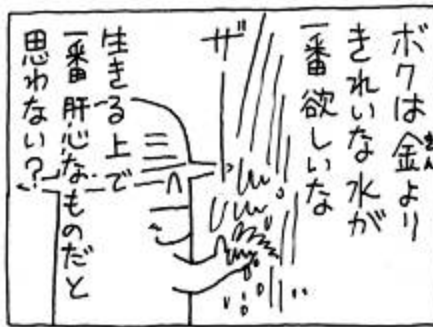 ボクは金より
きん
きれいな水が
一番欲しいな
ザー
生きる上で
一番肝心なものだと
思わない？